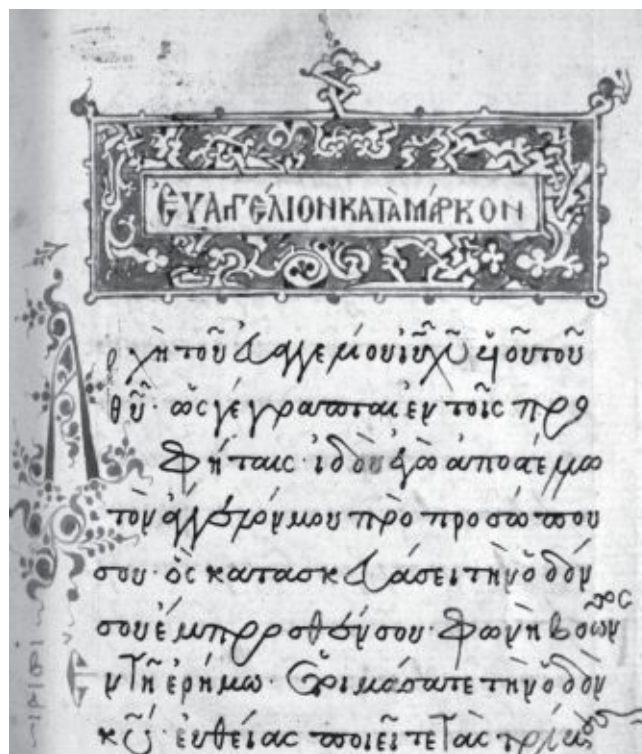 ἘΥΑΓΓΈΛΙΟΝ ΚΑΤᾺ ΜΆΡΚΟΝ
Ἀρχὴ τοῦ εὐαγγελίου ιῦ χῦ υἱοῦ τοῦ
θῦ· ὡς γέγραπται ἐν τοῖς προ
φήταις· ἰδοὺ ἐγὼ ἀποστέλλω
τὸν ἄγγελόν μου πρὸ προσώπου
σου· ὃς κατασκευάσει τὴν ὁδόν
σου ἔμπροσθέν σου· φωνὴ βοῶντος
ἐν τῇ ἐρήμω· ἑτοιμάσατε τὴν ὁδὸν
κῦ· εὐθείας ποιεῖτε τὰς τρίβους